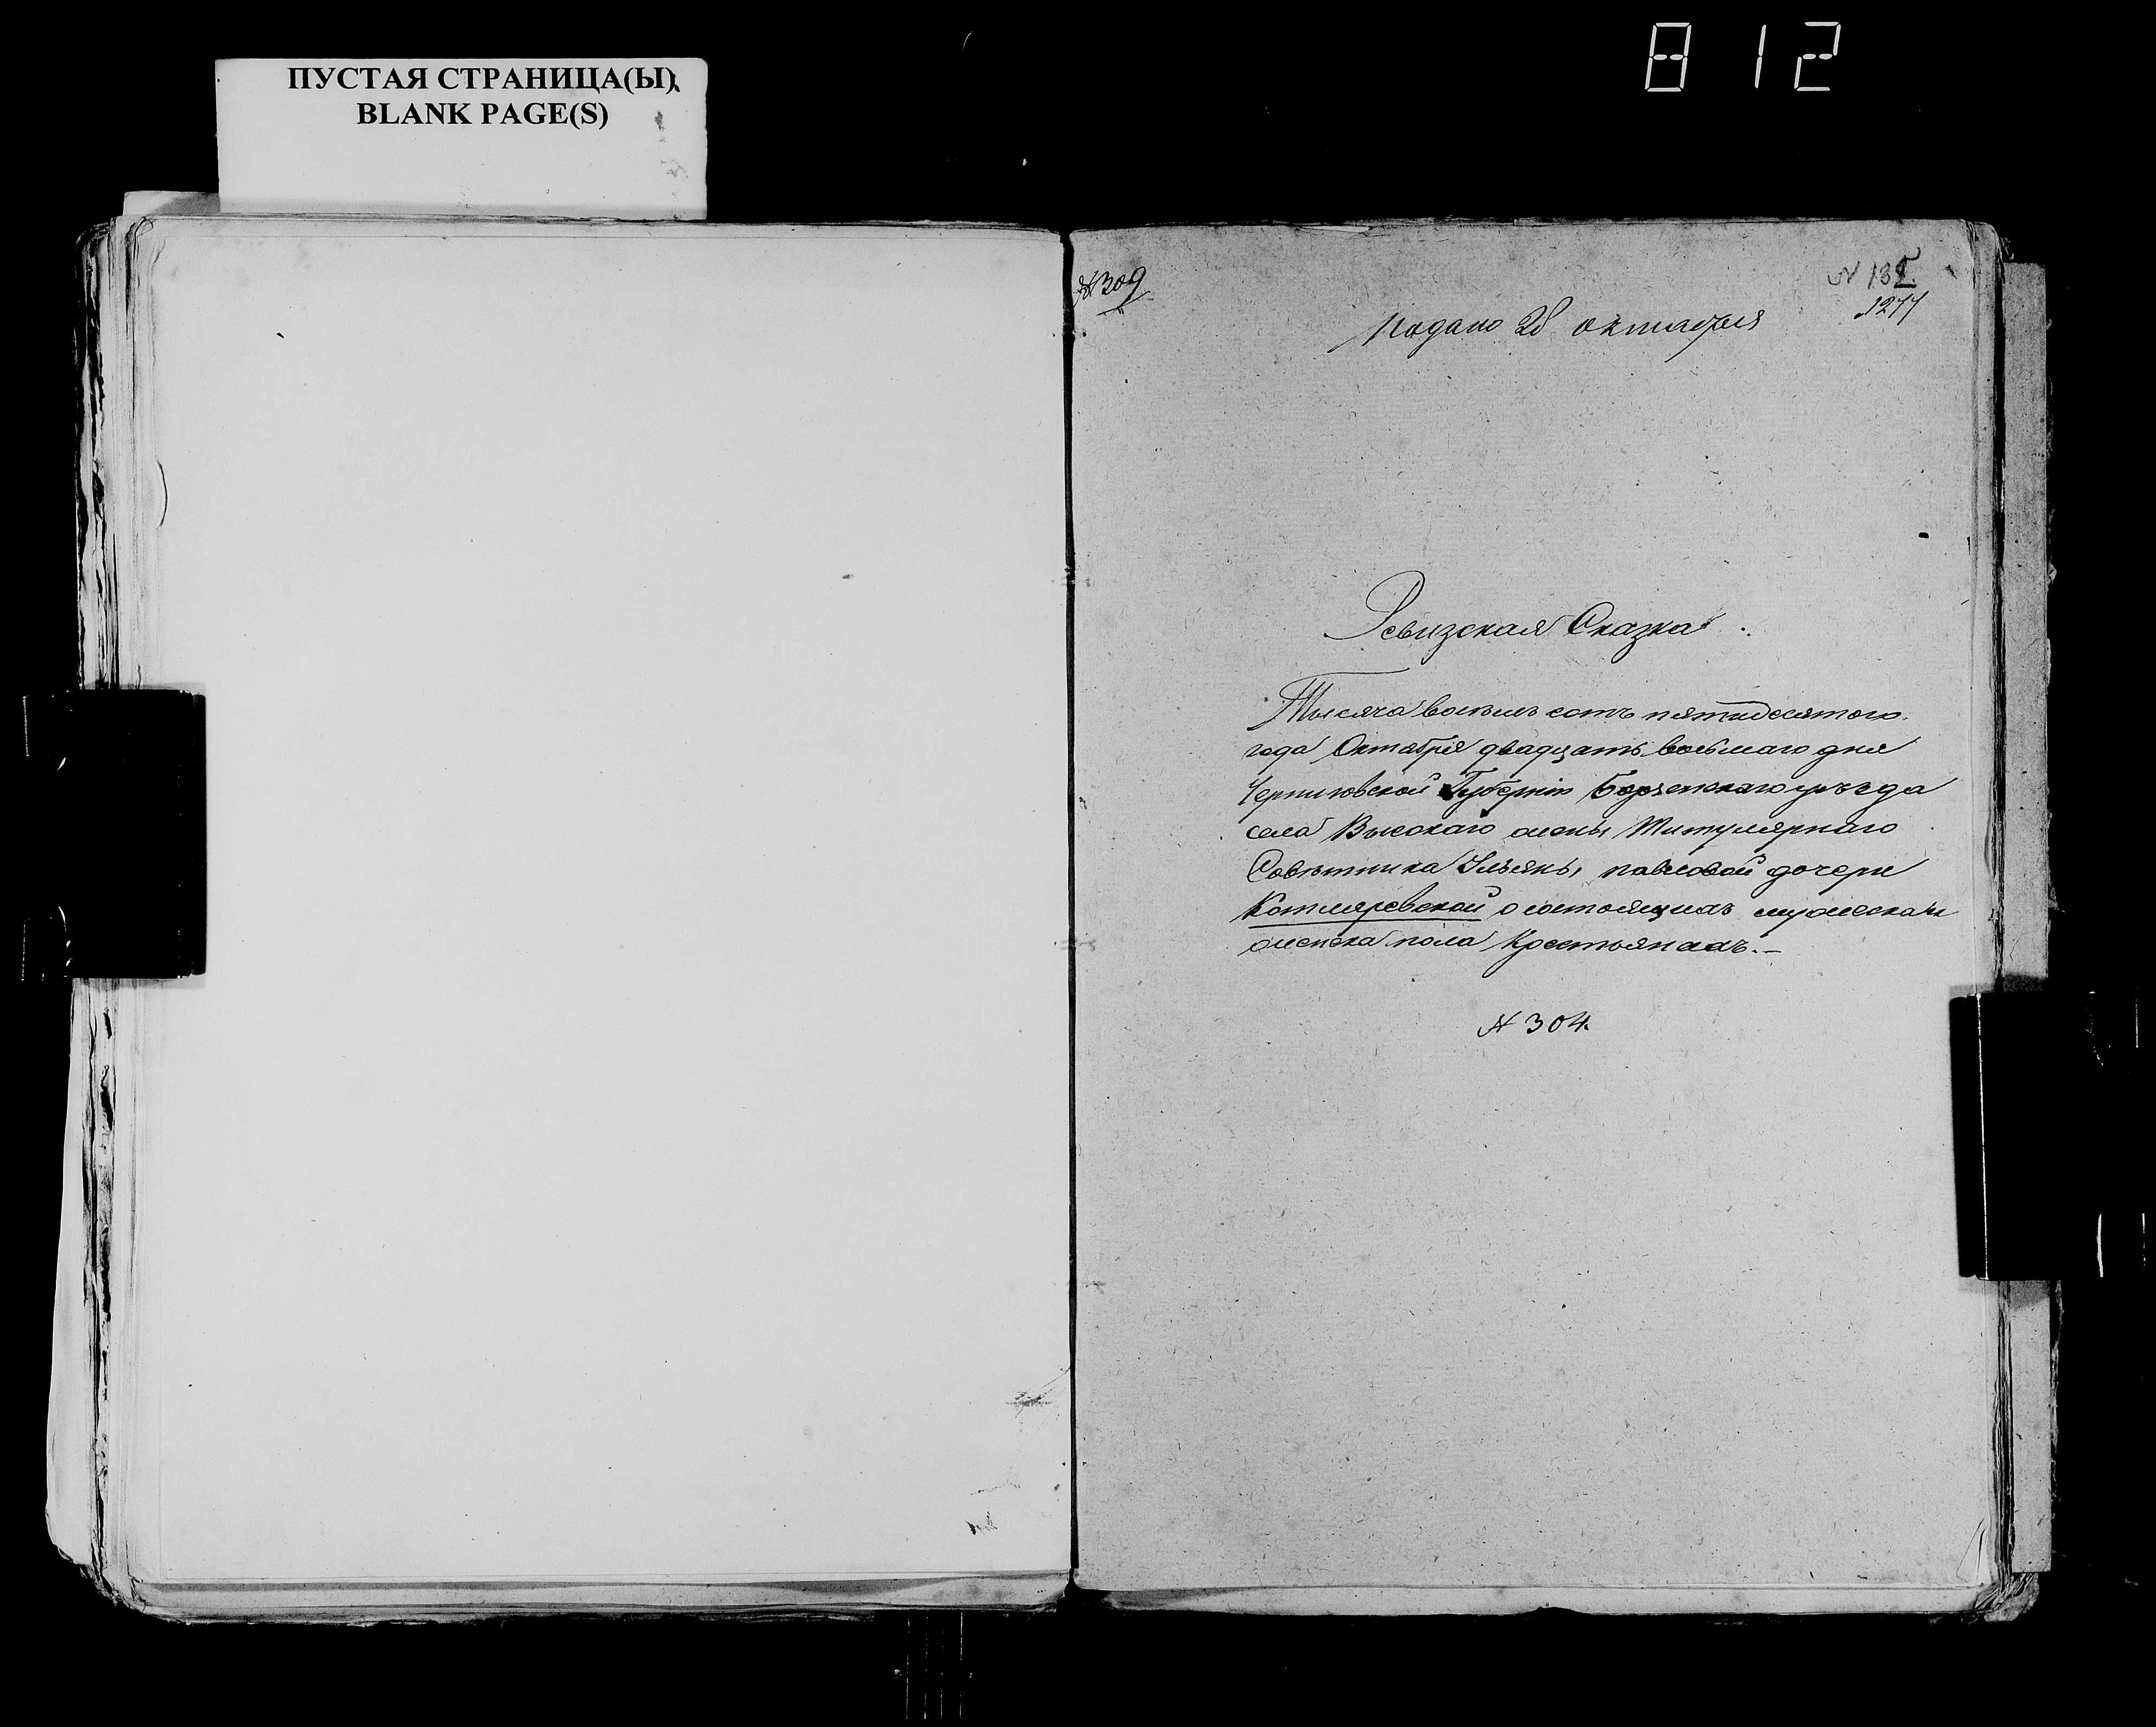 ПУСТАЯ СТРАНИЦА(Ы)
BLANK PAGE(S)
812
№ 309
№ 135.
1277
Подано 28 октября
Ревизская Сказка
Тысяча восемь сотъ пятидесятого
года Октября двадцать восьмаго дня
Черниговской Губерніи Борзенскаго уѣзда
села Высокаго жены Титулярнаго
Совѣтника Ульяны Павловой дочери
Котляревской о состоящихъ мужеска и
женска пола Крестьянахъ.—
№ 304